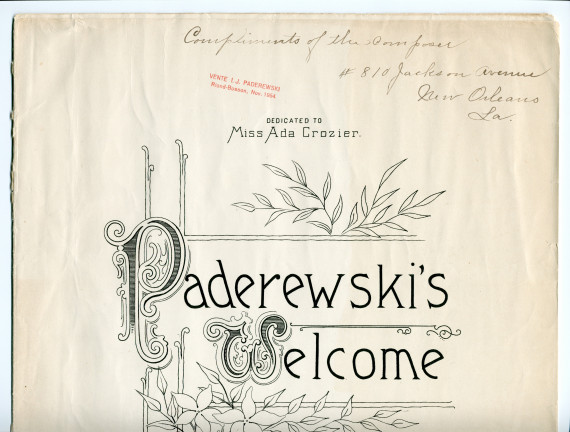 Compliments of the composer
# 810 Jackson Avenue
New Orleans
La.
VENTE I.J. PADEREWSKI
Riond-Bosson, Nov. 1954
DEDICATED TO
Miss Ada Crozier.
Paderewski's
Welcome